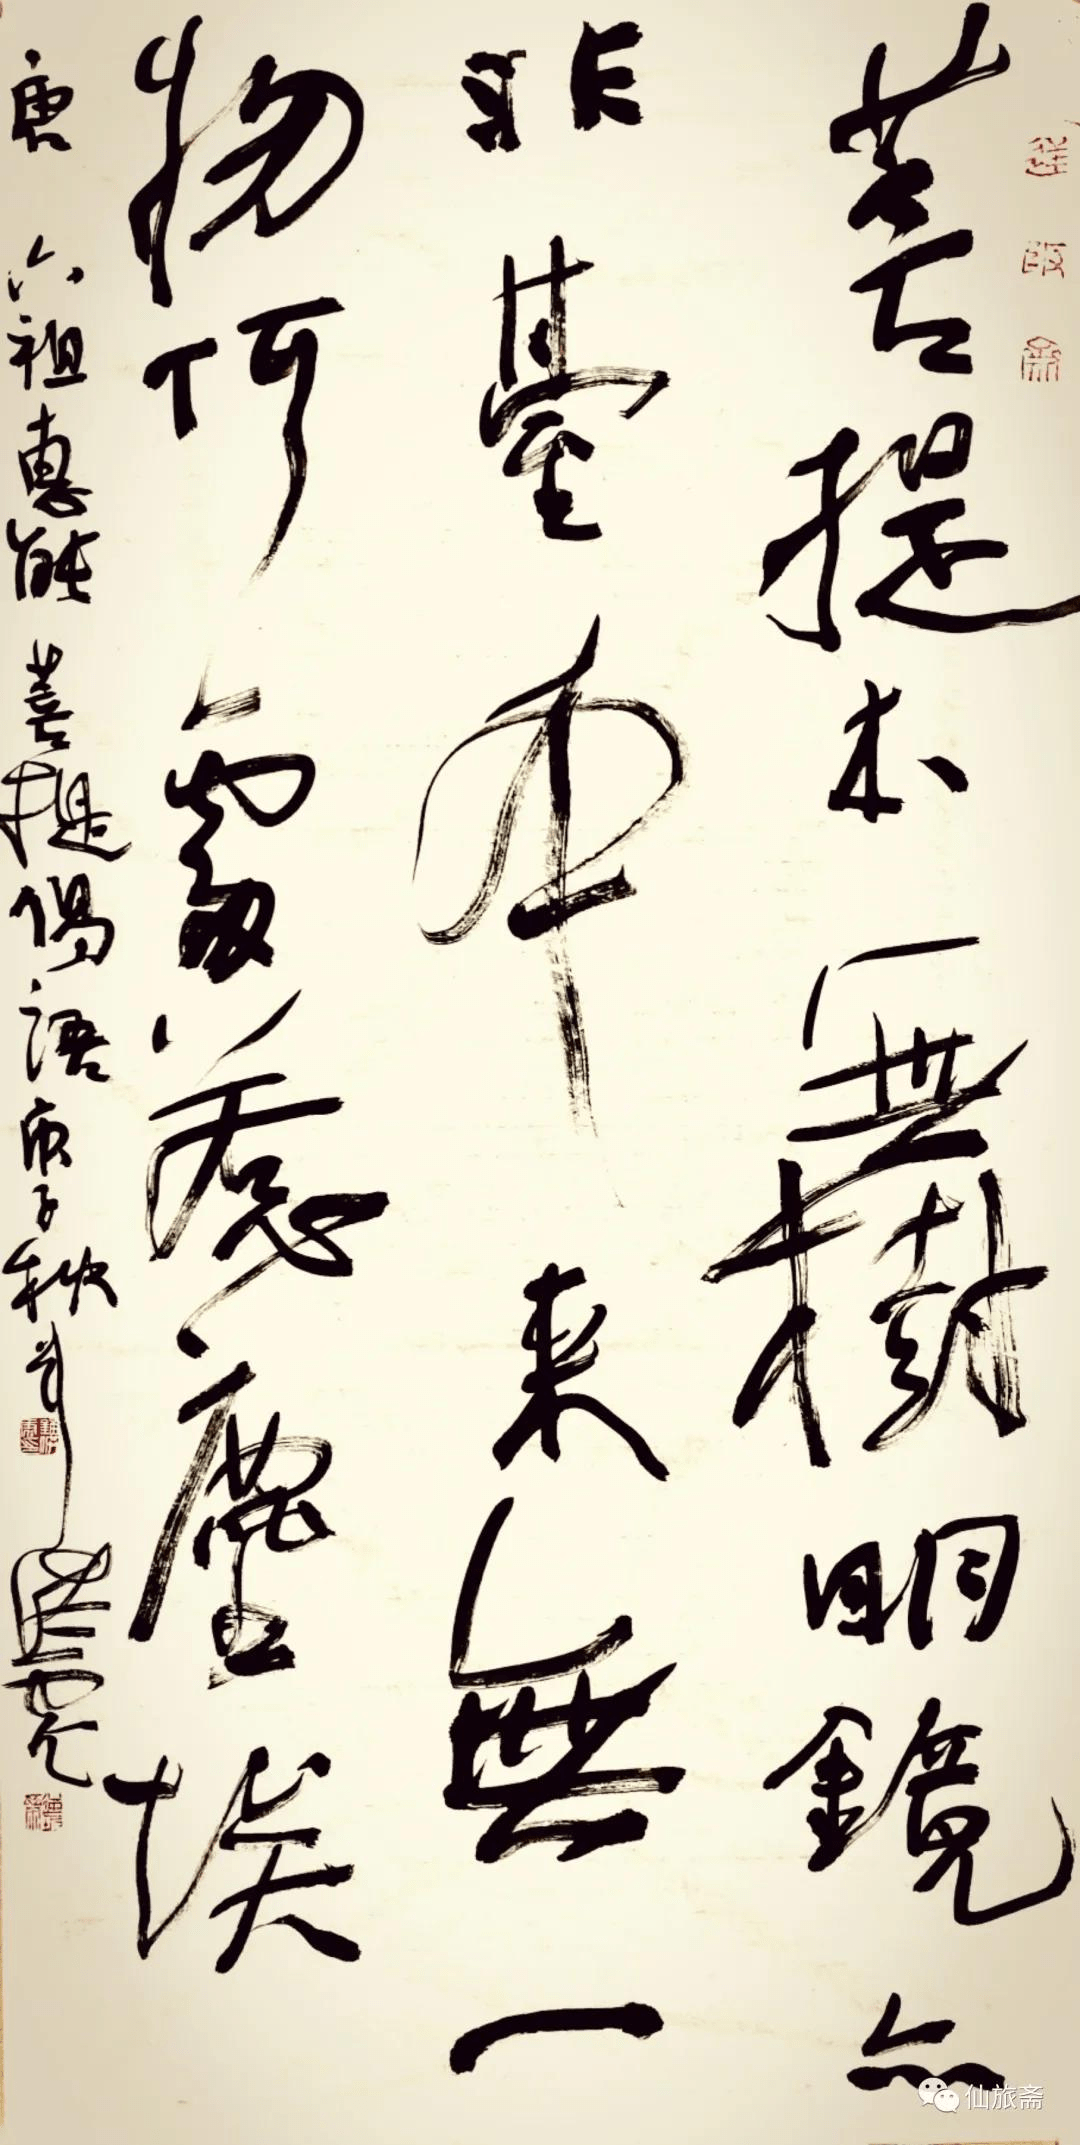 菩提本無樹明鏡亦
非臺本來無一
物何處惹塵埃
唐 六祖惠能菩提偈語庚子秋
仙旅斋